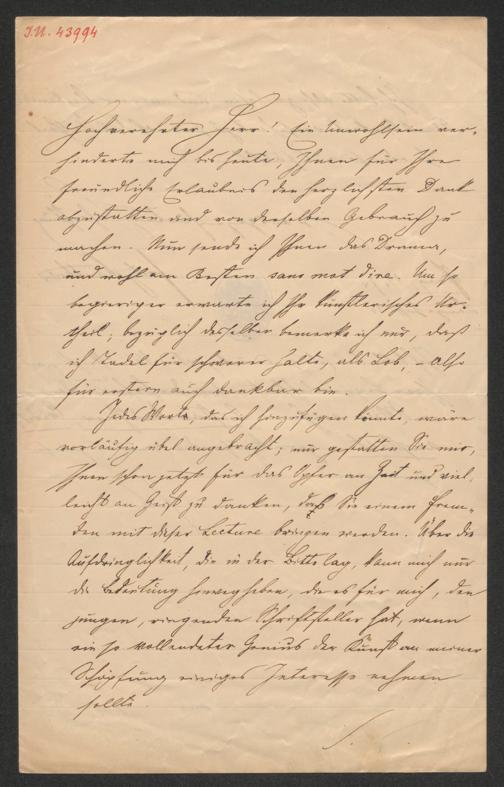 I.N. 43994
Hochverehrter Herr! Ein Unwohlsein ver-
hinderte mich bis heute, Ihnen für Ihre
freundliche Erlaubnis den herzlichsten Dank
abzustatten und von derselben Gebrauch zu
machen. Nun sende ich Ihnen das Drama,
und wohl am Besten sans mot dire. Um so
begieriger erwarte ich Ihr künstlerisches Ur-
theil; bezüglich desselben bemerke ich nur, daß
ich Tadel für schwerer halte, als Lob, – also
für erstern auch dankbar bin.
Jedes Wort, das ich hinzufügen könnte, wäre
vorläufig übel angebracht; nur gestatten Sie mir,
Ihnen schon jetzt für das Opfer an Zeit und viel-
leicht an Geist zu danken, daß Sie einem Frem-
den mit dieser Lecture bringen werden. Über die
Aufdringlichkeit, die in der Bitte lag, kann mich nur
die Bedeutung hinwegheben, die es für mich, den
jungen, ringenden Schriftsteller hat, wenn
ein so vollendeter Genius der Kunst an meiner
Schöpfung einiges Interesse nehmen
sollte.